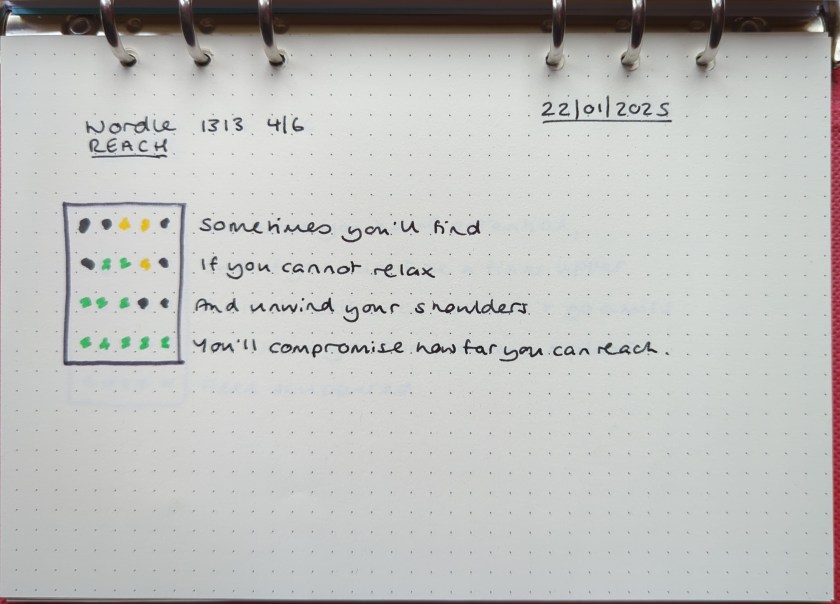 Wordle 1313 4/6
22/01/2025
REACH
Sometimes you'll find
If you cannot relax
And unwind your shoulders
You'll compromise how far you can reach.